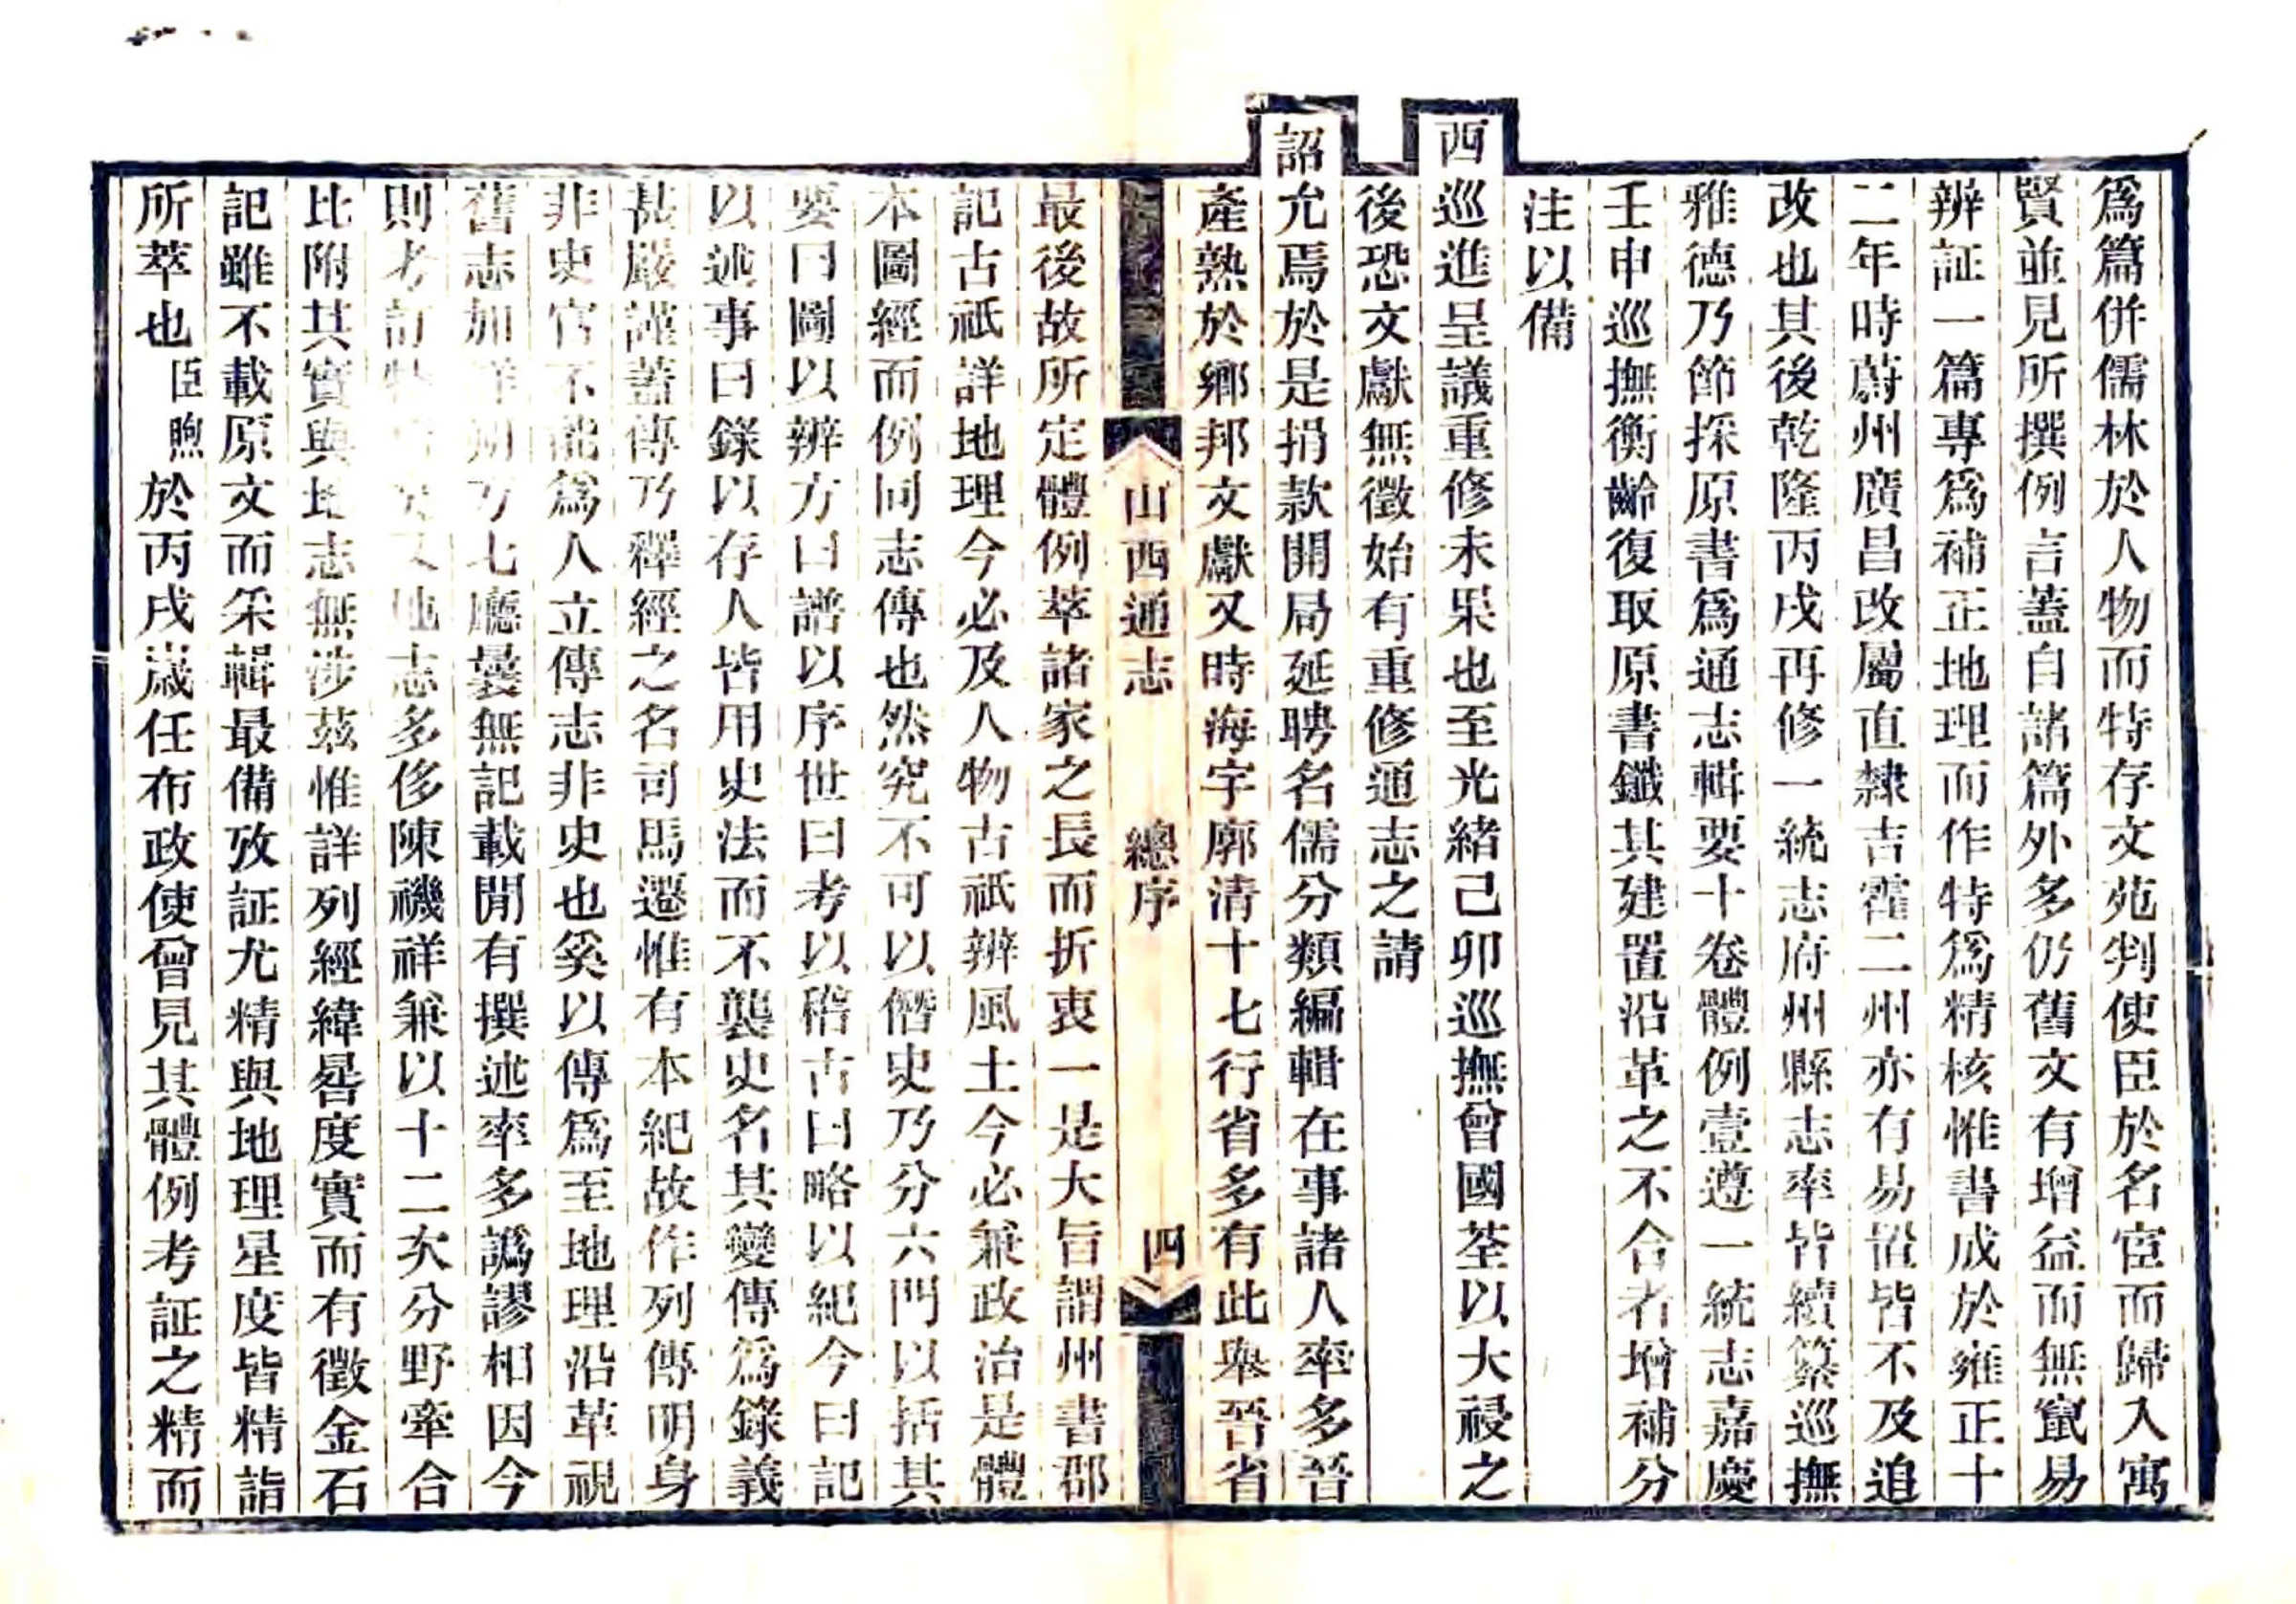 爲篇併儒林於人物而特存文苑判使臣於名宦而歸入寓
賢並見所撰例言蓋自諸篇外多仍舊文有增益而無竄易
辨証一篇專爲補正地理而作特爲精核惟書成於雍正十
二年時蔚州廣昌改屬直隸吉霍二州亦有易置皆不及追
改也其後乾隆丙戌再修一統志府州縣志率皆續纂巡撫
雅德乃節採原書爲通志輯要十卷體例壹遵一統志嘉慶
壬申巡撫衡齡復取原書鐵其建置沿革之不合者增補分
注以備
西巡進呈議重修未果也至光緒己卯巡撫曾國荃以大祲之
後恐文獻無徵始有重修通志之請
詔允焉於是捐款開局延聘名儒分類編輯在事諸人率多晉
產熟於鄉邦文獻又時海宇廓清十七行省多有此舉晉省
山西通志 總序 四
最後故所定體例萃諸家之長而折衷一是大旨謂州書郡
記古祇詳地理今必及人物古祇辨風土今必兼政治是體
本圖經而例同志傳也然究不可以僭史乃分六門以括其
要曰圖以辨方曰譜以序世曰考以稽古曰略以紀今曰記
以述事曰錄以存人皆用史法而不襲史名其變傳爲錄義
甚嚴謹蓋傳乃釋經之名司馬遷惟有本紀故作列傳明身
非史官不能爲人立傳志非史也奚以傳爲至地理沿革視
舊志加詳朔方七廳曩無記載閒有撰述率多譌謬相因今
則考訂特 地志多侈陳禨祥兼以十二次分野牽合
比附其實與地志無涉茲惟詳列經緯晷度實而有徵金石
記雖不載原文而采輯最備攷証尤精與地理星度皆精詣
所萃也臣煦於丙戌歲任布政使曾見其體例考証之精而